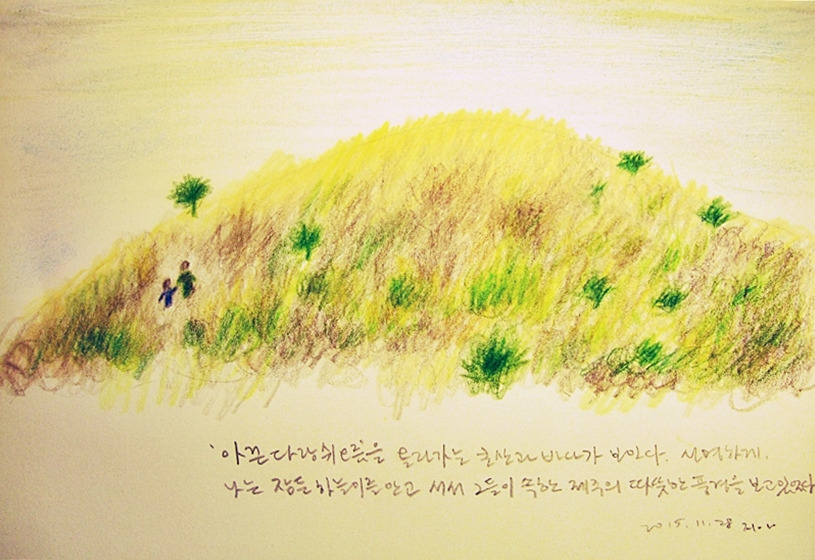 '아끈다랑쉬오름'을 올라가는 바다가 보인다.
나는 잠든 하늘이를 안고 서서 그들이 속한 제주의 따뜻한 풍경을 보고있었다
2015.11.28